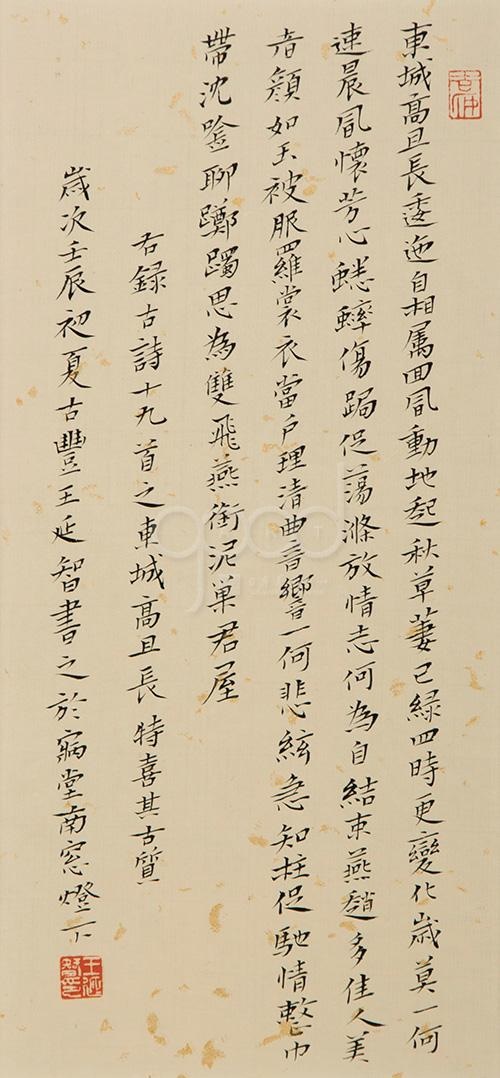 東城高且長逶迤自相屬回風動地起秋草萋已綠四時更變化歲莫一何
速晨風懷苦心蟋蟀傷跼促蕩滌放情志何為自結束燕趙多佳人美
者顏如玉被服羅裳衣當戶理清曲音響一何悲絃急知柱促馳情整巾
帶沈唫聊躑躅思為雙飛燕銜泥巢君屋
右錄古詩十九首之東城高且長特喜其古質
歲次壬辰初夏古豐王延智書之於寎堂南窗燈下
王延智印